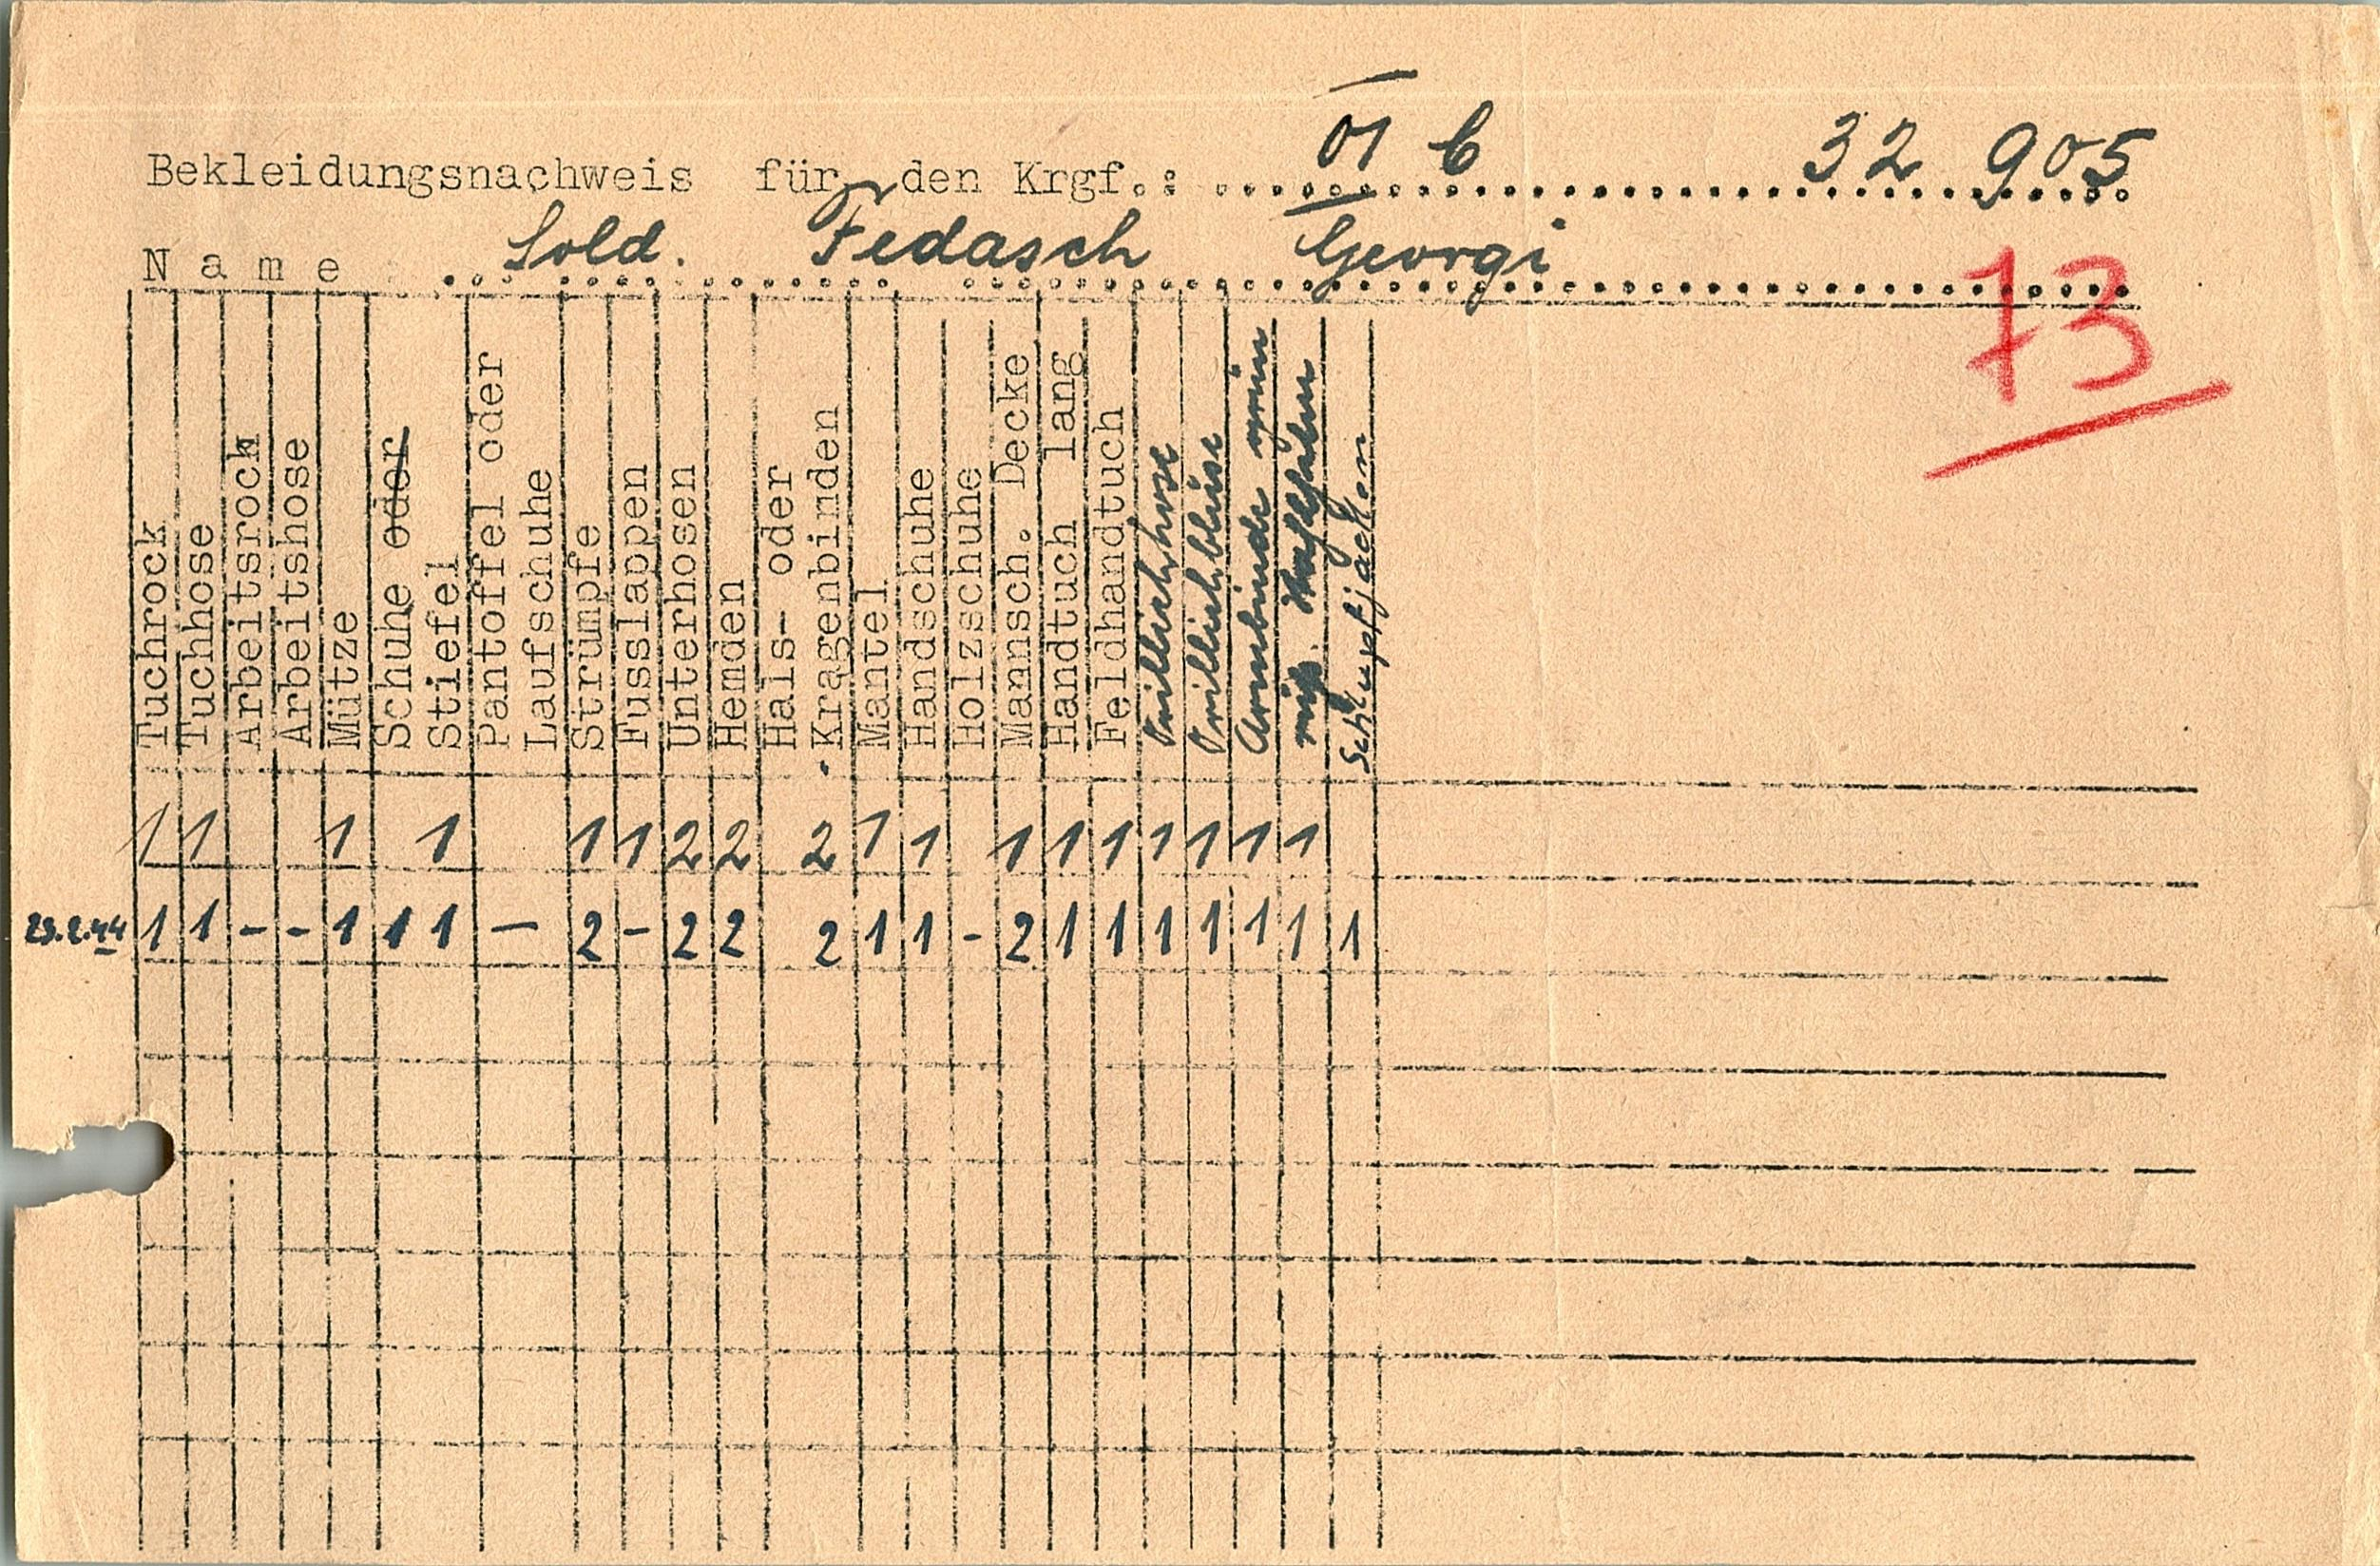 Bekleidungsnachweis für den Krgf.: VI C 32 905
Name Sold. Fedasch Georgi
73
Tuchrock
Tuchhose
Arbeitsrock
Arbeitshose
Mütze
Schuhe oder
Stiefel
Pantoffel oder
Laufschuhe
Strümpfe
Fusslappen
Unterhosen
Hemden
Hals- oder
Kragenbinden
Mantel
Handschuhe
Holzschuhe
Mannsch. Decke
Handtuch lang
Feldhandtuch
Drillichhose
Drillichbluse
Armbinde grün
Schlupfjacken
1 1 1 1 1 1 2 2 2 1 1 1 1 1 1 1 1 1
23.2.44 1 1 - - 1 1 1 - 2 - 2 2 2 1 1 - 2 1 1 1 1 1 1 1